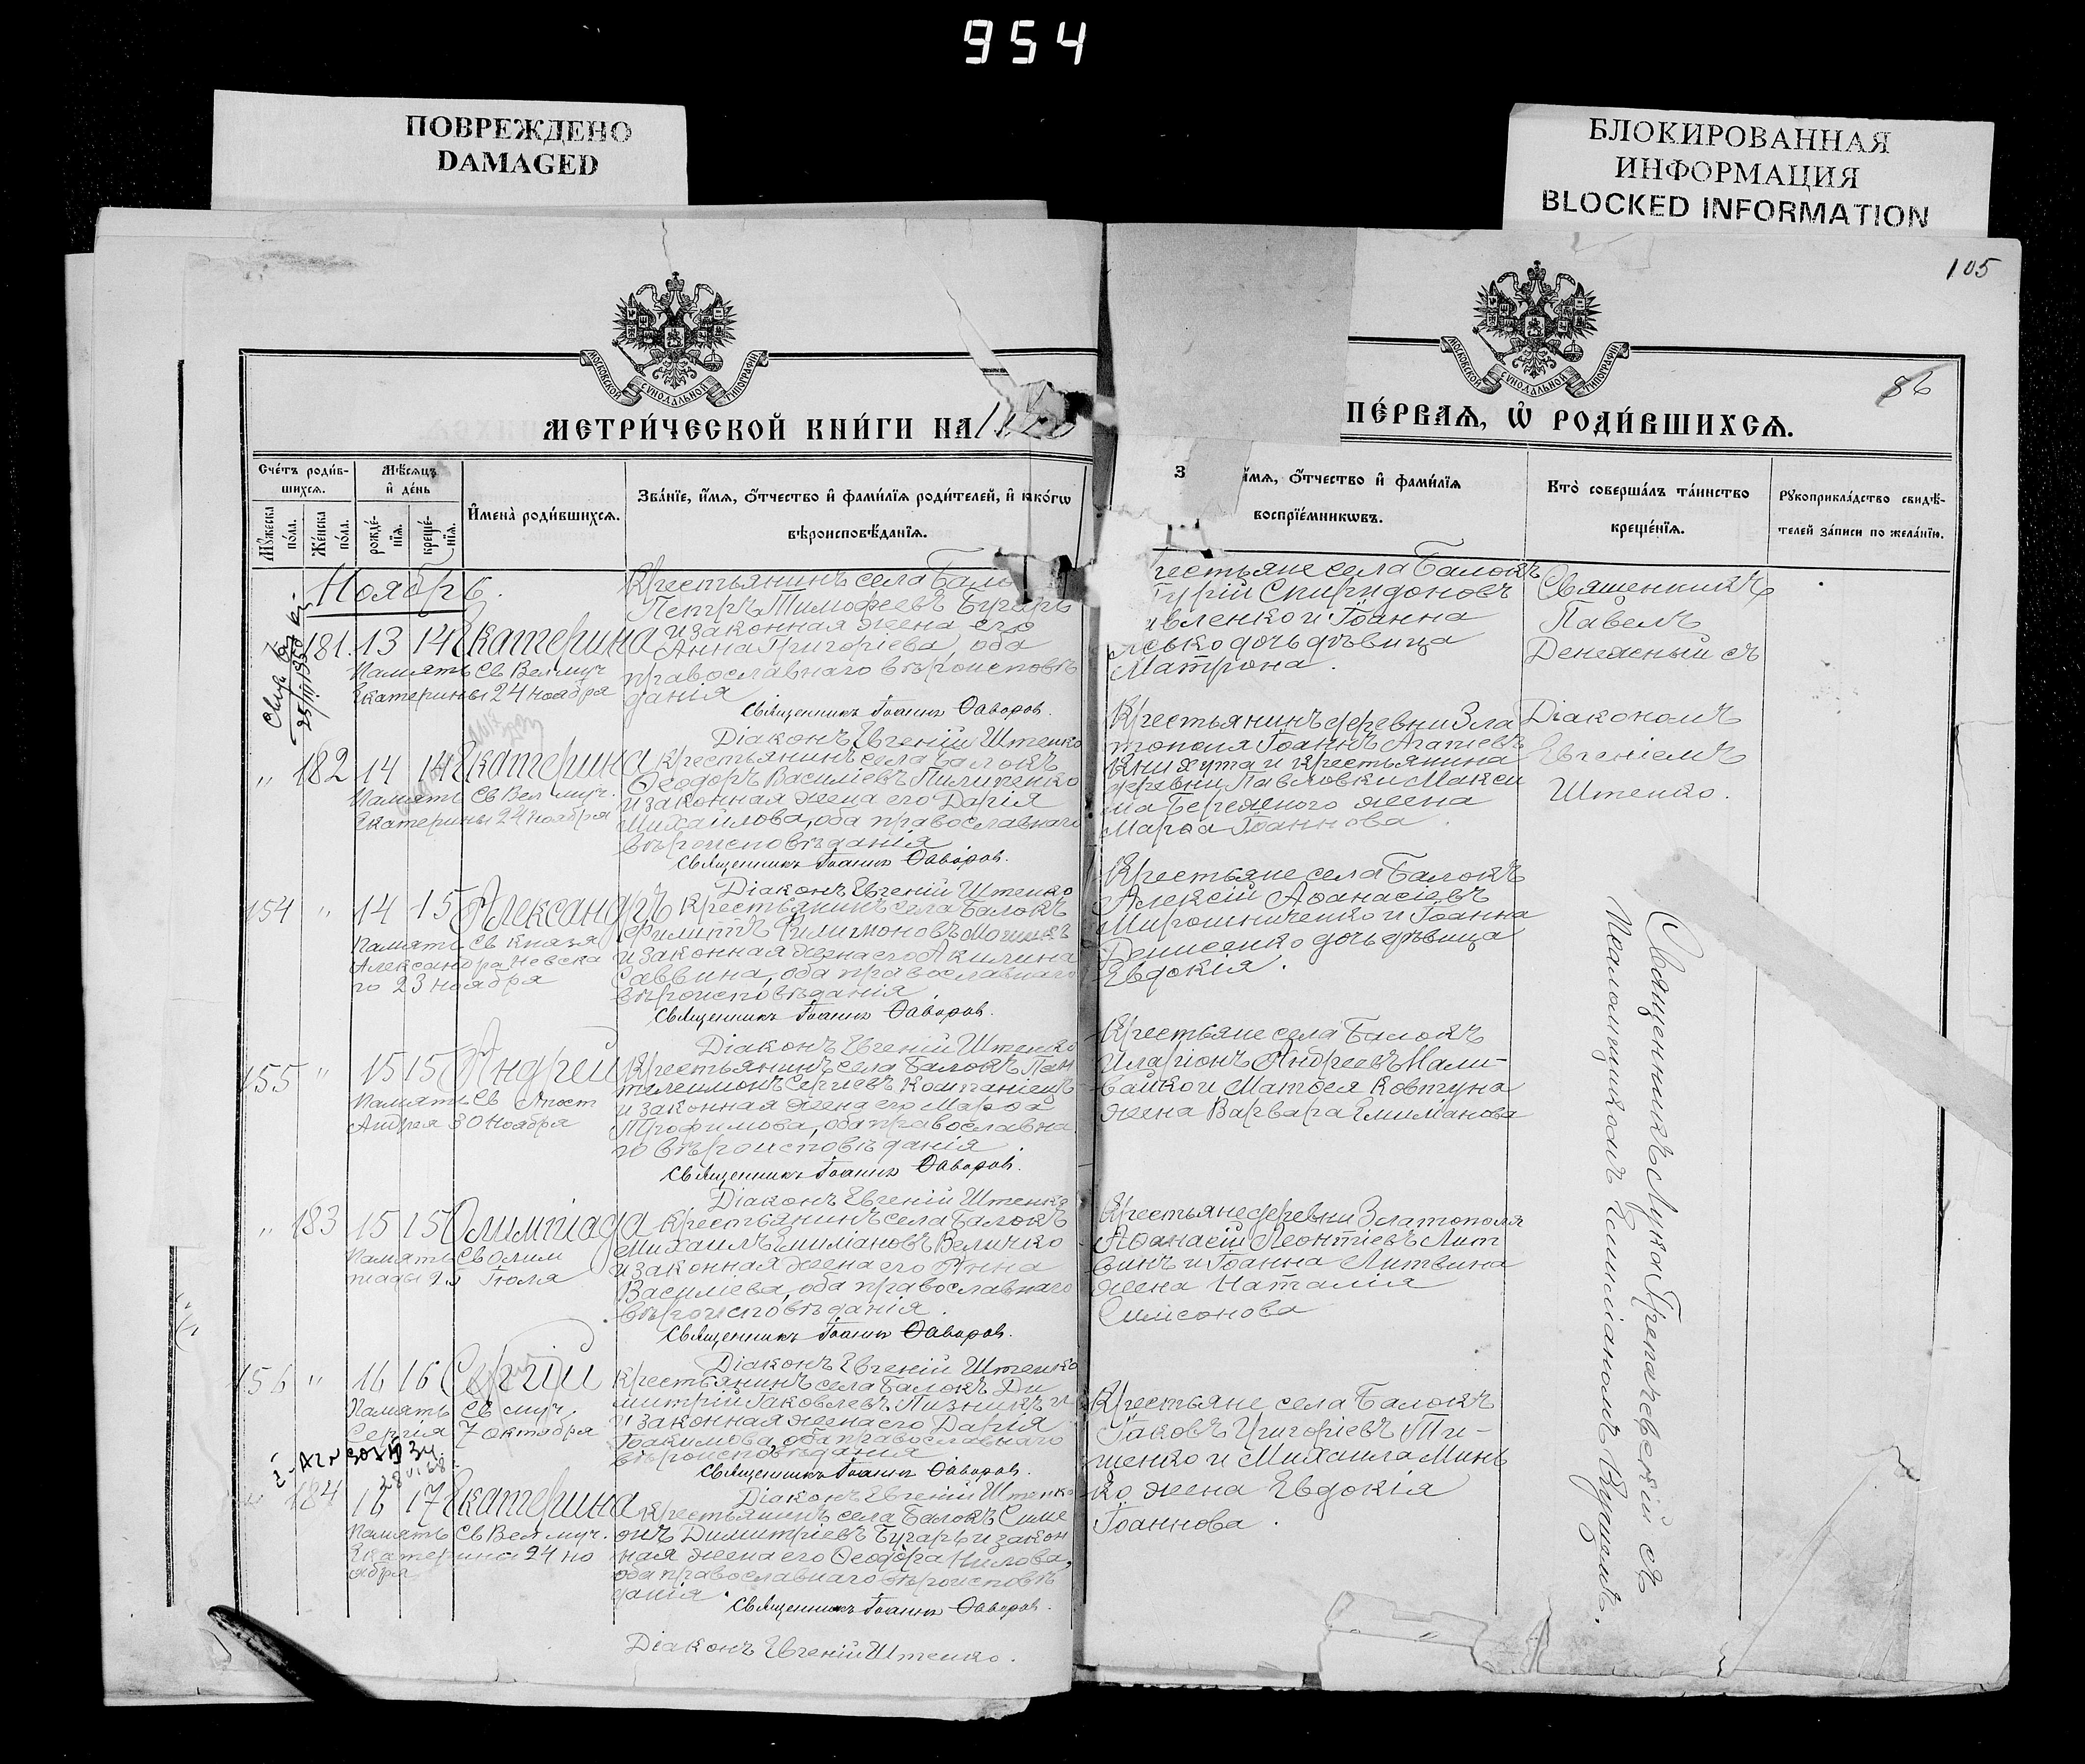 954
ПОВРЕЖДЕНО
DAMAGED
БЛОКИРОВАННАЯ
ИНФОРМАЦИЯ
BLOCKED INFORMATION
105
МОСКОВСКОЙ СѴНОДАЛЬНОЙ ТИПОГРАФІИ
МОСКОВСКОЙ СѴНОДАЛЬНОЙ ТИПОГРАФІИ
86
МЕТРИ́ЧЕСКОЙ КНИ́ГИ НА
ПЕ́РВАѦ, Ѿ РОДИ́ВШИХСѦ.
Сче́тъ роди́в-
шихся.
Мѣ́сяцъ
и де́нь
Мꙋжеска по́ла.
Же́нска по́ла.
рожде́-
нїя.
креще́-
нїя.
Имена̀ роди́вшихся.
Зва́нїе, и́мя, ѻ́тчество и фами́лїя роди́телей, и како́гѡ
вѣроисповѣ́данїя.
и́мя, ѻ́тчество и фами́лїя
воспрїе́мникѡвъ.
Кто̀ соверша́лъ та́инство
креще́нїя.
Рꙋкоприкла́дство свидѣ́-
телей за́писи по жела́нїю.
Ноябрь.
181. 13 14 Екатерина
Память Св Вел муч
Екатерины 24 ноября
Крестьянинъ села Бало
Петръ Тимофеевъ Бугаръ
и законная жена его
Анна Григоріева, оба
православнаго вѣроисповѣ
данія
Священникъ Іоаннъ Ѳаворов.
Діаконъ Евгеній Штепко
рестьяне села Балокъ
Гурій Спиридоновъ
авленко и Іоанна
сько дочь дѣвица
Матрона.
Священникъ
Павелъ
Денежный съ
Діакономъ
Евгеніемъ
Штепко.
" 182 14 14 Екатерина
Память Св Вел муч.
Екатерины 24 ноября
Крестьянинъ села Балокъ
Ѳеодоръ Василіевъ Пилипенко
и законная жена его Дарія
Михаилова, оба православнаго
вѣроисповѣданія
Священникъ Іоаннъ Ѳаворов.
Діаконъ Евгеній Штепко
Крестьянинъ деревни Зла
тополя Іоаннъ Агапіевъ
Книхута и крестьянина
деревни Павловки Макси
ма Бережного жена
Марѳа Іоаннова.
154 " 14 15 Александръ
Память Св Князя
Александра Невска
го 23 ноября
Крестьянинъ села Балокъ
Филиппъ Филимоновъ
и законная жена его Акилина
Саввина, оба православнаго
вѣроисповѣданія
Священникъ Іоаннъ Ѳаворов.
Діаконъ Евгеній Штепко
Крестьяне села Балокъ
Алексій Аѳанасіевъ
Мирошниченко и Іоанна
Денисенко дочь дѣвица
Евдокія.
155 " 15 15 Андрей
Память Св Апост
Андрея 30 ноября
Крестьянинъ села Балокъ Пан
телеимонъ Сергіевъ Компаніецъ
и законная жена его Марѳа
Трофимова, оба православна
го вѣроисповѣданія.
Священникъ Іоаннъ Ѳаворов.
Діаконъ Евгеній Штепко
Крестьяне села Балокъ
Иларіонъ Андреевъ Нали-
вайко и Матѳея Ковтуна
жена Варвара Емиліанова
" 183 15 15 Олимпіада
Память Св Олим
піады 25 Іюля
Крестьянинъ села Балокъ
Михаилъ Емиліановъ Величко
и законная жена его Анна
Василіева, оба православнаго
вѣроисповѣданія.
Священникъ Іоаннъ Ѳаворов.
Діаконъ Евгеній Штепко
Крестьяне деревни Златополя
Аѳанасій Леонтіевъ Лит
винъ и Іоанна Литвина
жена Наталія
Симеонова
156 " 16 16 Сергій
Память Св муч
Сергія 7 октября
Крестьянинъ села Балокъ Ди
митрій Іаковлевъ
и законная жена его Дарія
Іоакимова, оба православнаго
вѣроисповѣданія
Священникъ Іоаннъ Ѳаворов.
Діаконъ Евгеній Штепко
Крестьяне села Балокъ
Іаковъ Григоріевъ Ти-
щенко и Михаила Минь
ко жена Евдокія
Іоаннова.
184 16 17 Екатерина
Память Св Вел муч.
Екатерины 24 но
ября
Крестьянинъ села Балокъ Симе
онъ Димитріевъ Бугаръ и закон
ная жена его Ѳеодора Нилова,
оба православнаго вѣроисповѣ
данія.
Священникъ Іоаннъ Ѳаворов.
Діаконъ Евгеній Штепко.
Священникъ Лука Грепачевскій съ
Псаломщикомъ Емиліаномъ Куцомъ.